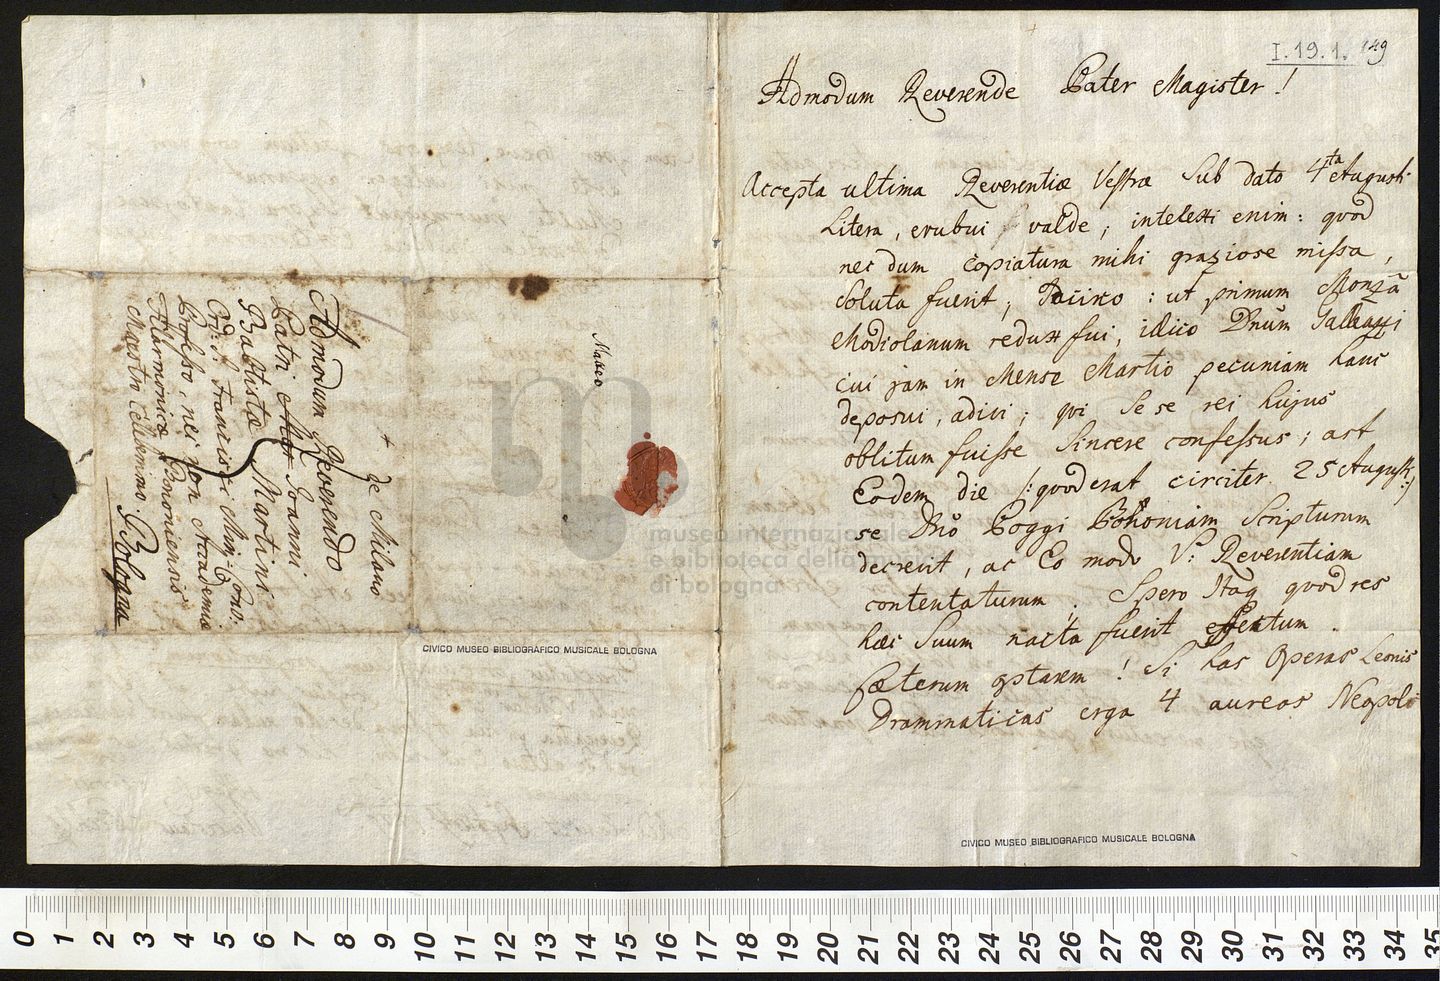 I.19.1. 149
Admodum Reverende Pater Magister!
Accepta ultima Reverentiæ Vestræ sub dato 4ta Augusti
Litera, erubui valde, intelexi enim: quod
nec dum copiatura mihi graziose missa,
soluta fuerit; : ut primum Monzâ
Modiolanum redux fui, idico Dnum Galeazzi
cui jam in Mense Martio pecuniam hanc
deposui, adivi; qui se se rei hujus
oblitum fuisse sincere confessus; ast
Eodem die /: quod erat circiter 25 August: /
se Dno Poggi Bononiam scripturum
decrevit, ac Eo modo V: Reverentiam
contentaturum. Spero Itaq quod res
hæc suum nacta fuerit effectum.
Cæterum optarem! Si has Operas Leonis
Drammaticas erga 4 aureos Neapoli
CIVICO MUSEO BIBLIOGRAFICO MUSICALE BOLOGNA
de Milano
Admodum Reverendo
Patri Joanni
Babtistæ Martini
Ord: S. Francisci Min: Conv:
Profeso, nec non Accademiæ
Filarmonicæ Bononiensis
Mastro Cellemmo.
Bologna
CIVICO MUSEO BIBLIOGRAFICO MUSICALE BOLOGNA
museo internazionale
e biblioteca della musica
di bologna
0 1 2 3 4 5 6 7 8 9 10 11 12 13 14 15 16 17 18 19 20 21 22 23 24 25 26 27 28 29 30 31 32 33 34 35